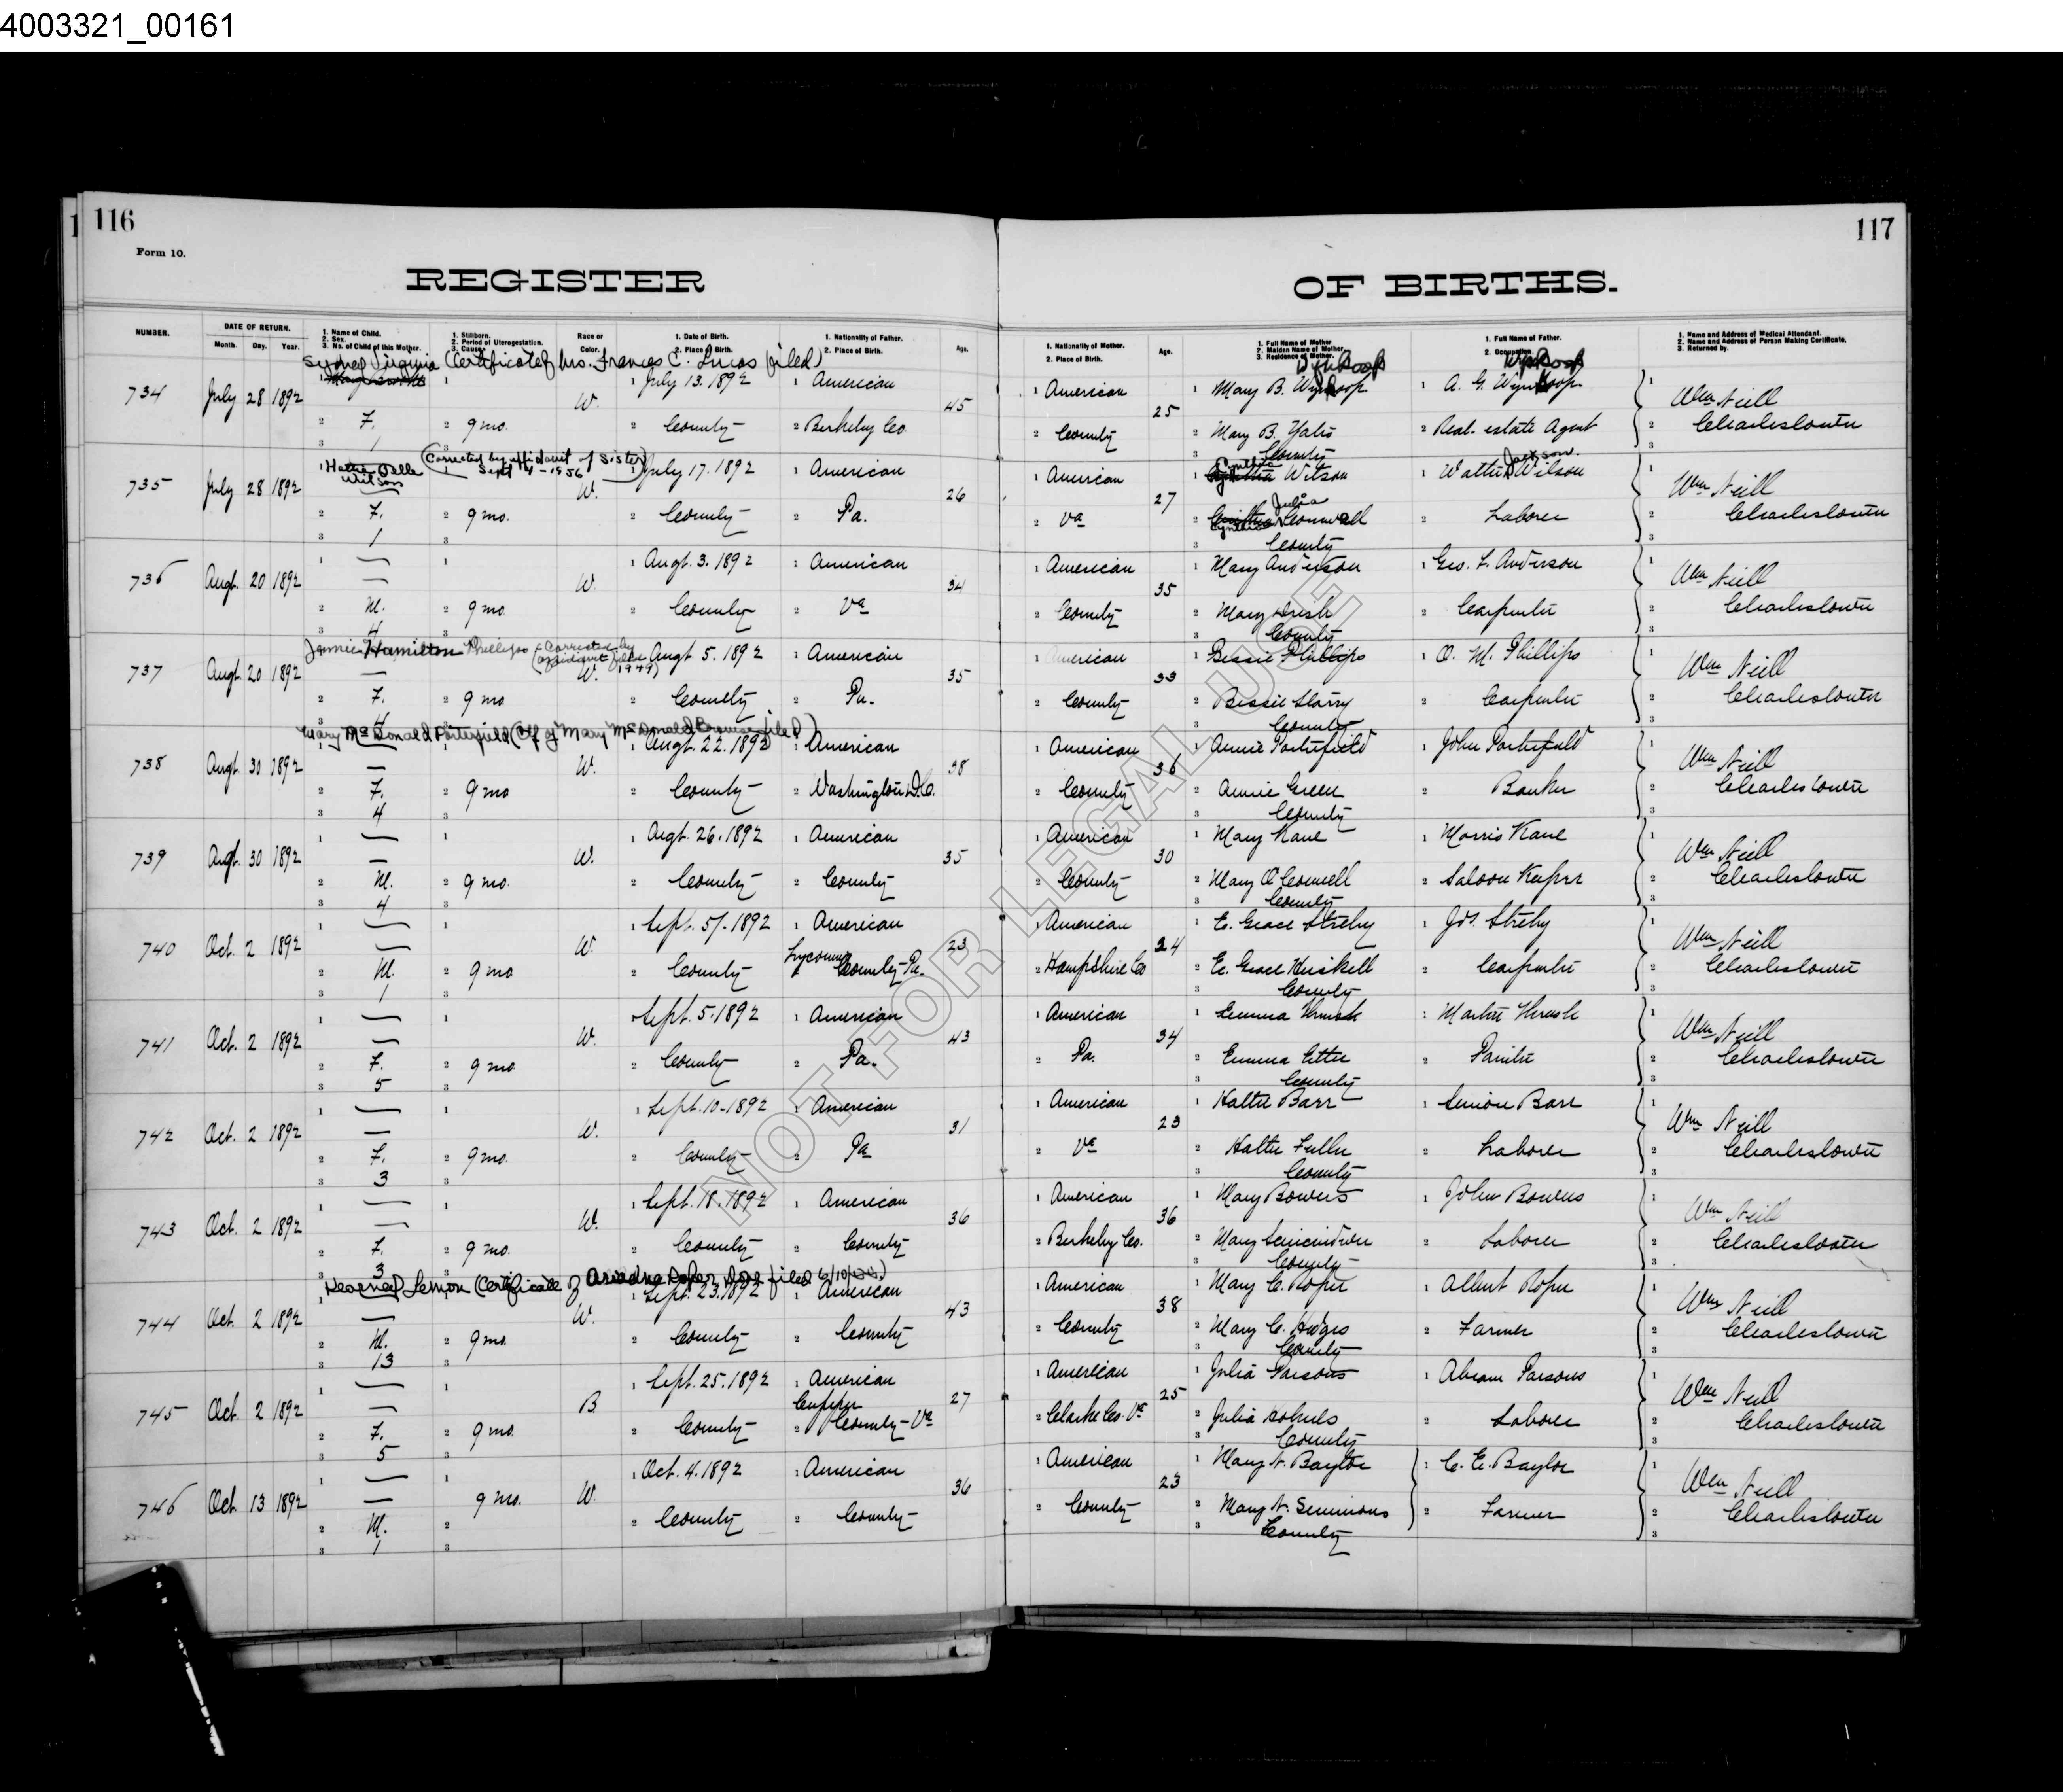 4003321_00161
116
117
Form 10.
REGISTER OF BIRTHS.
NUMBER.
DATE OF RETURN.
Month. Day. Year.
1. Name of Child.
2. Sex.
3. No. of Child of this Mother.
1. Stillborn.
2. Period of Uterogestation.
3. Cause.
Race or Color.
1. Date of Birth.
2. Place of Birth.
1. Nationality of Father.
2. Place of Birth.
Age.
1. Nationality of Mother.
2. Place of Birth.
Age.
1. Full Name of Mother
2. Maiden Name of Mother
3. Residence of Mother.
1. Full Name of Father.
2. Occupation.
1. Name and Address of Medical Attendant.
2. Name and Address of Person Making Certificate.
3. Returned by.
Sydney Virginia (Certificate of Mrs. Frances C. Lucas filed)
Wynkoop Wynkoop
734 July 28 1892 W. 1 July 13. 1892 1 American 45 1 American 25 1 Mary B. Wynkoop 1 A. G. Wynkoop 1 Wm Neill
2 F. 2 9 mo. 2 County 2 Berkeley Co. 2 County 2 Mary B. Yates 2 Real estate Agent 2 Charlestown
3 1 3 County 3
Hattie Belle Wilson (Corrected by affidavit of Sister Sept 4-1956)
735 July 28 1892 W. 1 July 17. 1892 1 American 26 1 American 27 1 Wilson 1 Jackson Wilson 1 Wm Neill
2 F. 2 9 mo. 2 County 2 Pa. 2 Va 2 Julia 2 Laborer 2 Charlestown
3 1 3 County 3
736 Augt. 20 1892 W. 1 Augt. 3. 1892 1 American 34 1 American 35 1 Mary Anderson 1 Geo. F. Anderson 1 Wm Neill
2 M. 2 9 mo. 2 County 2 Va 2 County 2 Mary 2 Carpenter 2 Charlestown
3 4 3 County 3
Jannie Hamilton Phillips (Corrected by affidavit filed 1949)
737 Augt. 20 1892 W. Augt. 5. 1892 1 American 35 American 33 1 Bessie Phillips 1 O. M. Phillips 1 Wm Neill
2 F. 2 9 mo 2 County 2 Pa. 2 County 2 Bessie Starry 2 Carpenter 2 Charlestown
3 4 3 County 3
Mary McDonald Porterfield (Ctf of Mary McDonald filed)
738 Augt. 30 1892 W. Augt. 22. 1892 1 American 38 1 American 36 1 Annie Porterfield 1 John Porterfield 1 Wm Neill
2 F. 2 9 mo 2 County 2 Washington D.C. 2 County 2 Annie Green 2 Banker 2 Charlestown
3 4 3 County 3
739 Augt. 30 1892 W. 1 Augt. 26. 1892 1 American 35 1 American 30 1 Mary Kane 1 Morris Kane 1 Wm Neill
2 M. 2 9 mo. 2 County 2 County 2 County 2 Mary 2 Saloon Keeper 2 Charlestown
3 4 3 County 3
740 Oct. 2 1892 W. 1 Sept. 5. 1892 1 American 23 1 American 24 1 E. Grace Streby 1 Jos. Streby 1 Wm Neill
2 M. 2 9 mo 2 County Lycoming County Pa. 2 Hampshire Co 2 E. Grace Huskell 2 Carpenter 2 Charlestown
3 1 3 County 3
741 Oct. 2 1892 W. Sept. 5. 1892 1 American 43 1 American 34 1 Emma 1 Martin 1 Wm Neill
2 F. 2 9 mo 2 County 2 Pa. 2 Pa. 2 Emma Etter 2 Painter 2 Charlestown
3 5 3 County 3
742 Oct. 2 1892 W. 1 Sept. 10. 1892 1 American 31 1 American 23 1 Hattie Barr 1 Simon Barr 1 Wm Neill
2 F. 2 9 mo. 2 County 2 Pa 2 Va 2 Hattie Fuller 2 Laborer 2 Charlestown
3 3 3 County 3
743 Oct. 2 1892 W. 1 Sept. 18. 1892 1 American 36 1 American 36 1 Mary Bowers 1 John Bowers 1 Wm Neill
2 F. 2 9 mo. 2 County 2 County 2 Berkeley Co. 2 Mary 2 Laborer 2 Charlestown
3 3 3 County 3
Lemon (Certificate of Ariadne Roper filed)
744 Oct. 2 1892 W. Sept. 23. 1892 American 43 1 American 38 1 Mary C. Roper 1 Albert Roper 1 Wm Neill
2 M. 2 9 mo. 2 County 2 County 2 County 2 Mary C. Hedges 2 Farmer 2 Charlestown
3 13 3 County 3
745 Oct. 2 1892 B. 1 Sept. 25. 1892 1 American 27 1 American 25 1 Julia Parsons 1 Abram Parsons 1 Wm Neill
2 F. 2 9 mo 2 County 2 County - Va 2 Clarke Co. Va 2 Julia 2 Laborer 2 Charlestown
3 5 3 County 3
746 Oct. 13 1892 9 mo. W. 1 Oct. 4. 1892 1 American 36 1 American 23 1 Mary N. Baylor 1 C. E. Baylor 1 Wm Neill
2 M. 2 2 County 2 County 2 County 2 Mary N. Simmons 2 Farmer 2 Charlestown
3 1 3 County 3
NOT FOR LEGAL USE